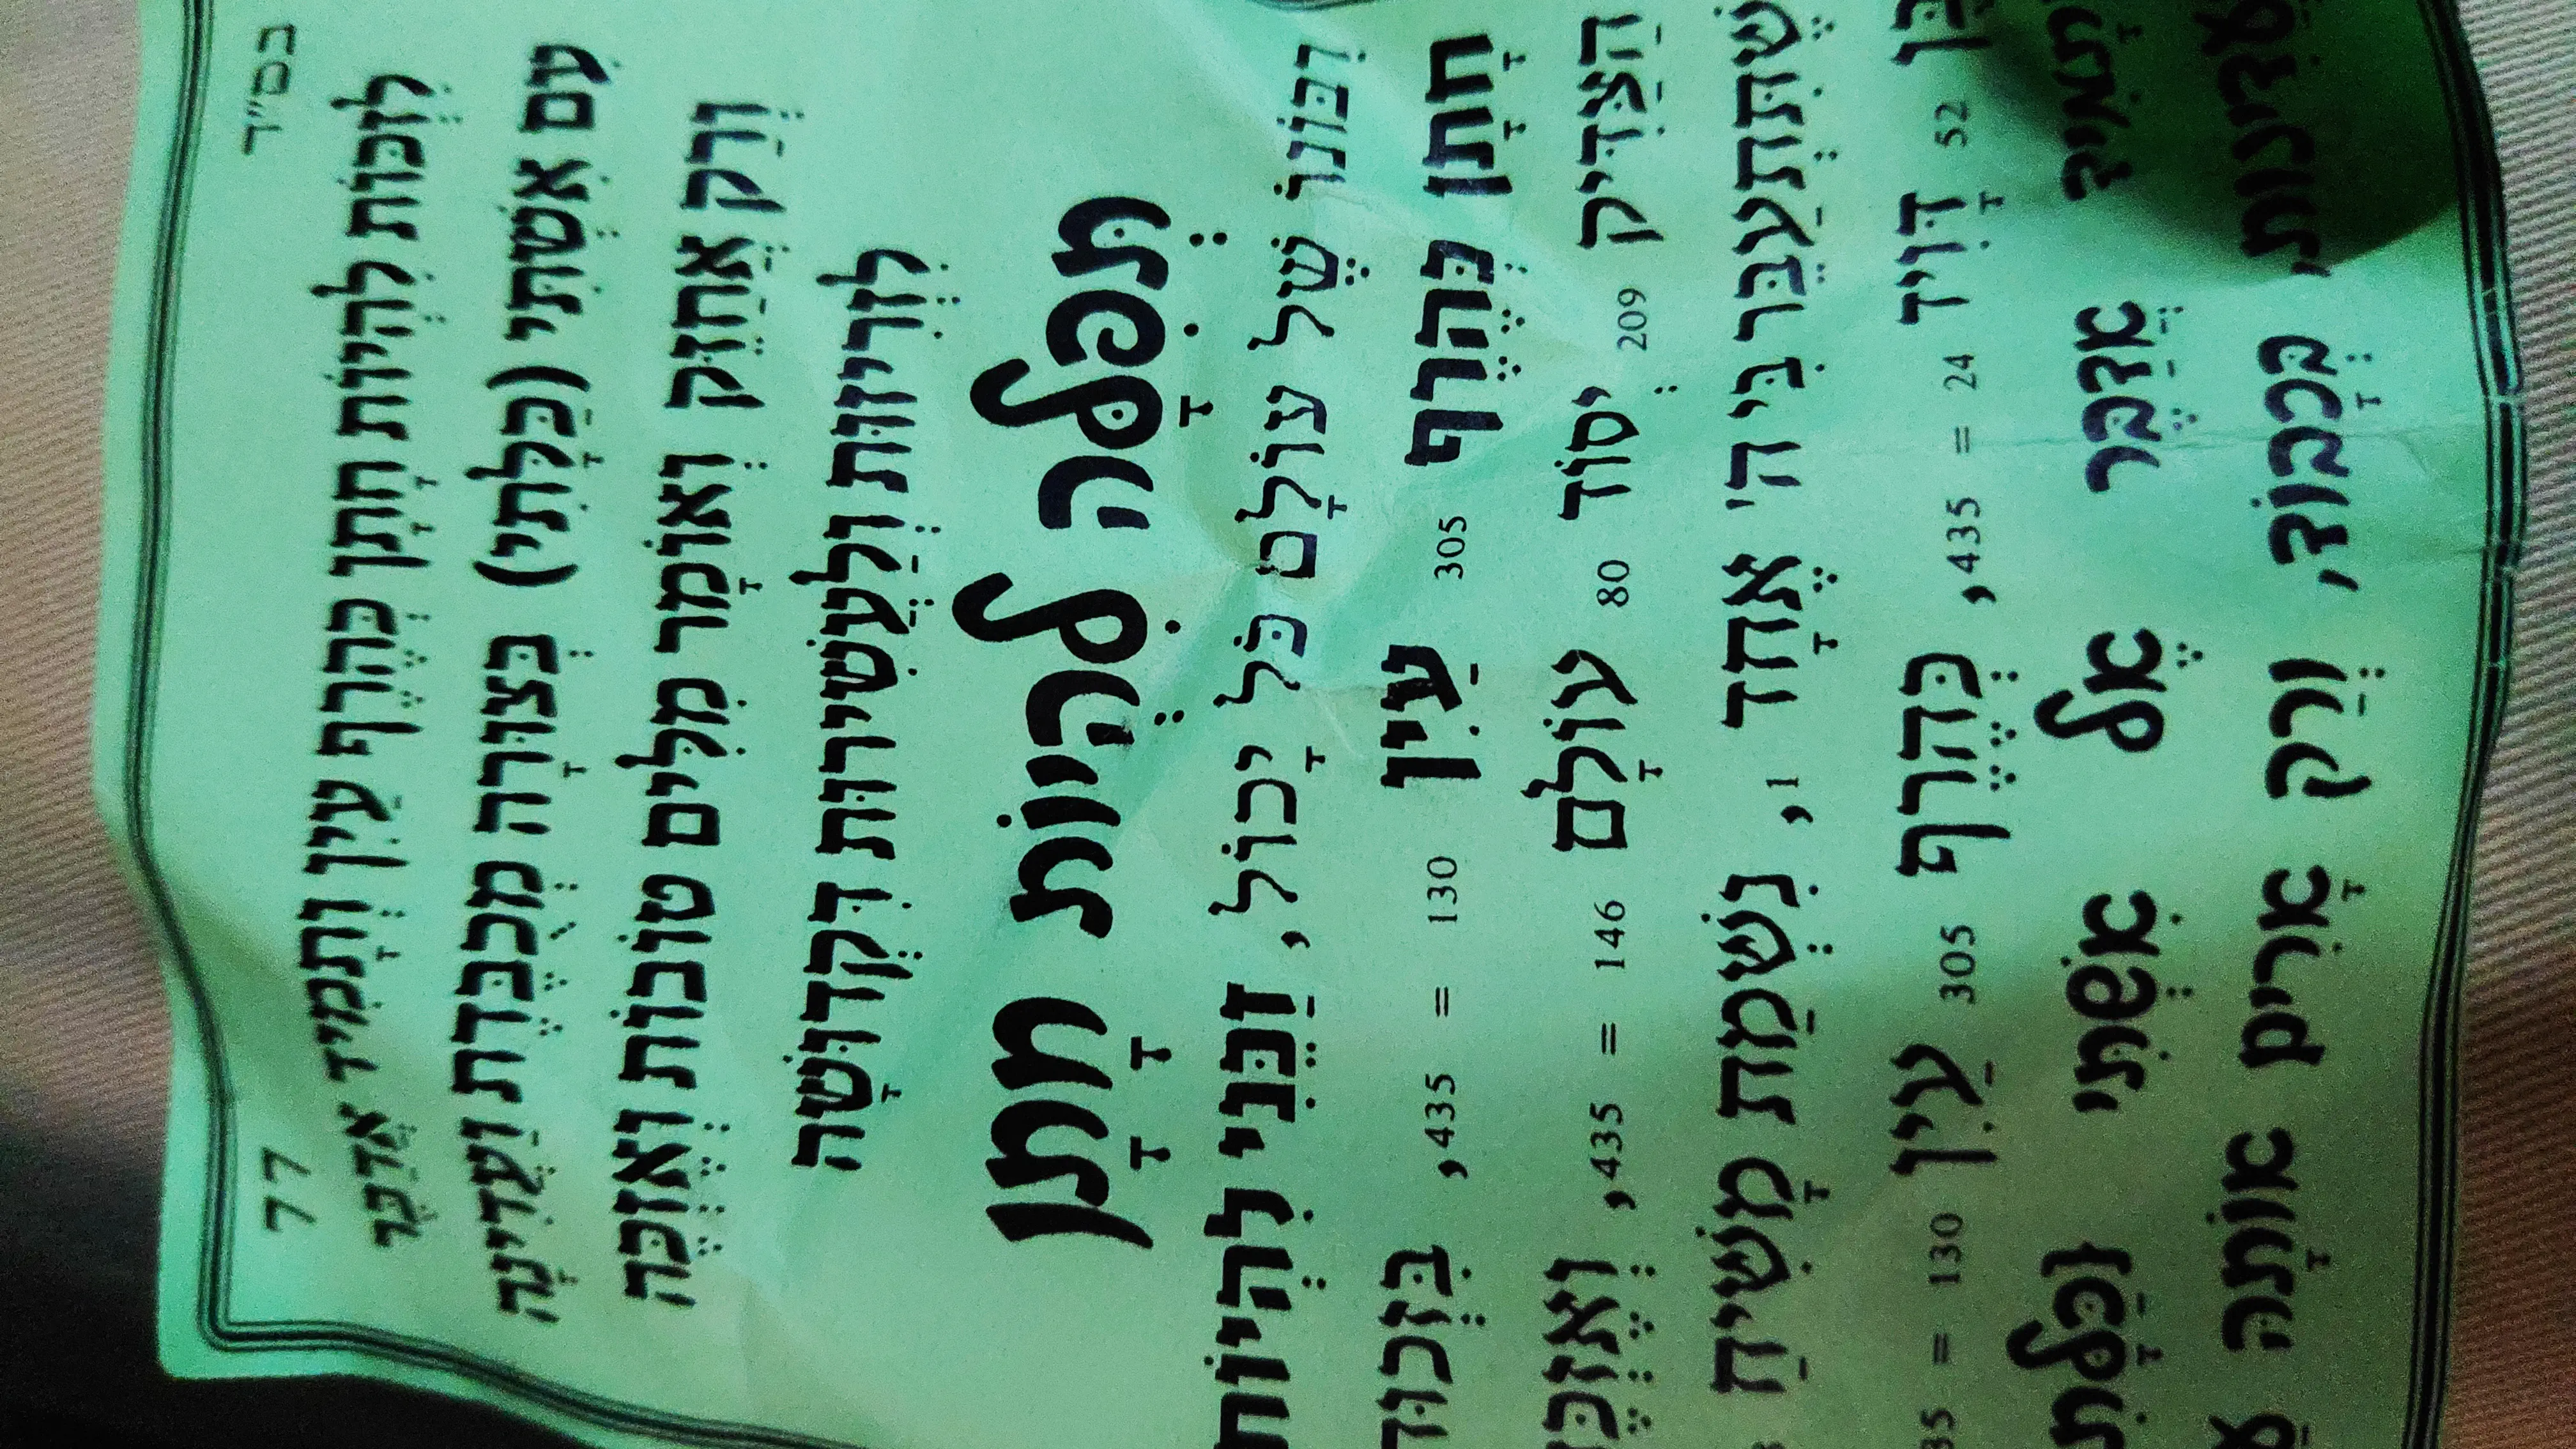 בס"ד
לִזְכּוֹת לִהְיוֹת חָתָן כְּהֶרֶף עַיִן וְתָמִיד אֲדַבֵּר
עִם אִשְׁתִּי (כַּלָּתִי) בְּצוּרָה מְכֻבֶּדֶת וַעֲדִינָה
וְרַק אֲחַזֵּק וְאוֹמַר מִלִּים טוֹבוֹת וְאֶזְכֶּה
לִזְרִיזוּת וְלַעֲשִׁירוּת דִּקְדוּשָּׁה
תְּפִלָּה לִהְיוֹת חָתָן
רִבּוֹנוֹ שֶׁל עוֹלָם כֹּל יָכוֹל, זַכֵּנִי לִהְיוֹת
חָתָן כְּהֶרֶף 305 עַיִן 130 = 435, בִּזְכוּת
הַצַּדִּיק 209 יְסוֹד 80 עוֹלָם 146 = 435, וְאֶזְכֶּה
שֶׁתִּתְעַבֵּר בִּי ה' אֶחָד 1, נִשְׁמַת מָשִׁיחַ
בֶּן 52 דָּוִיד 24 = 435, כְּהֶרֶף 305 עַיִן 130 =
וְתָמִיד אֲדַבֵּר אֶל אִשְׁתִּי וְכַלָּתִי
בַּעֲדִינוּת, בְּכָבוֹד, וְרַק אָרִים אוֹתָהּ